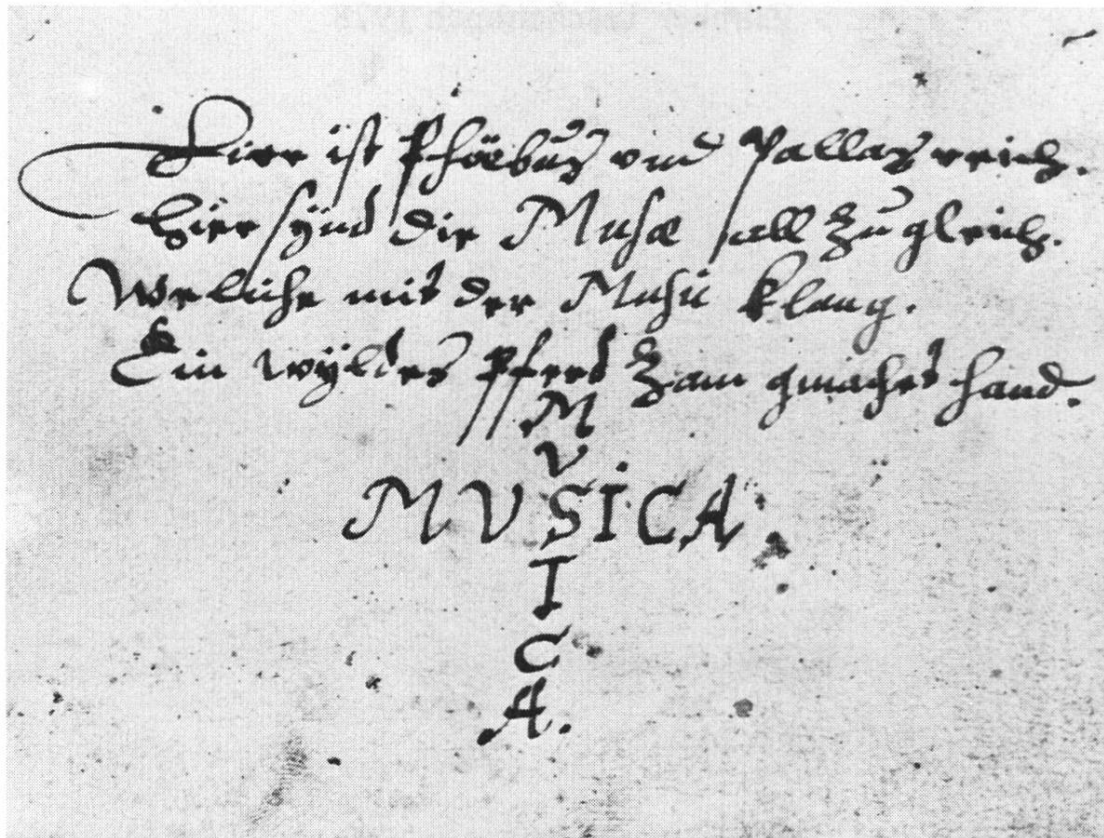 Hier ist Phöebus vnd Pallas reich.
Hier sÿnd die Musæ all Zu gleich.
Weliche mit der Music klang.
Ein wÿldes Pferd Zam gmachet hand.
M
V
MVSICA.
I
C
A.